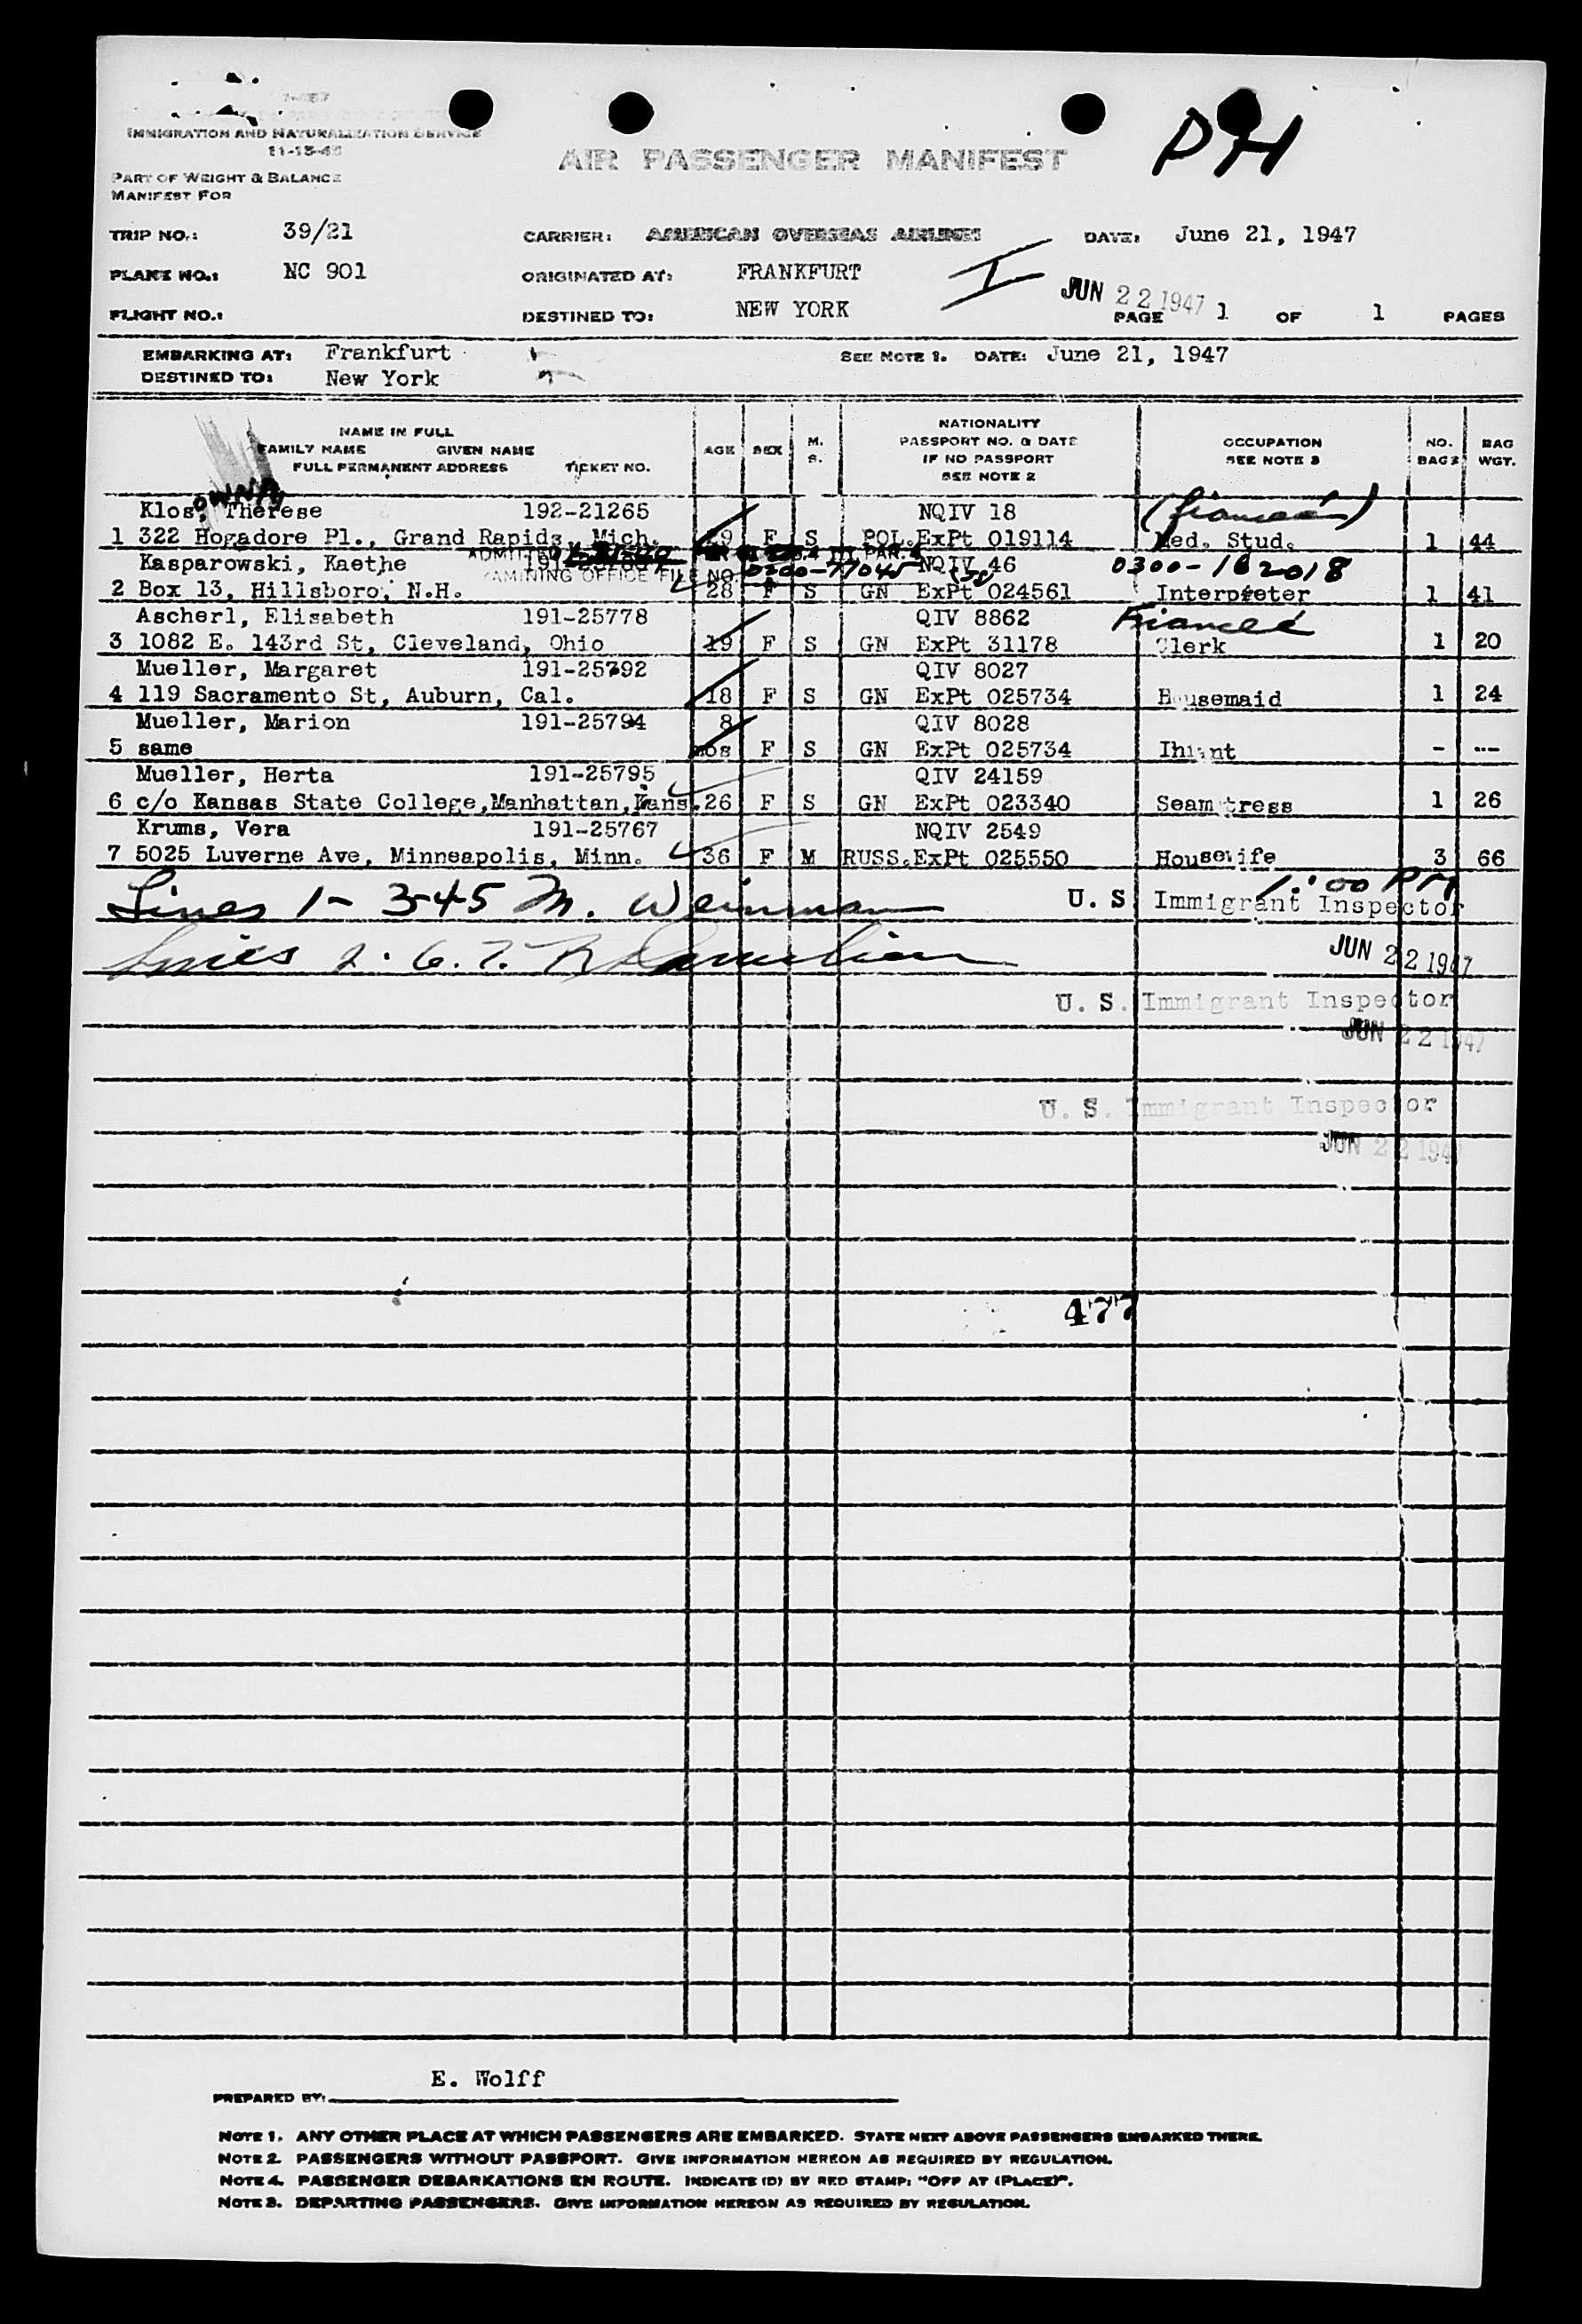 IMMIGRATION AND NATURALIZATION SERVICE
11-15-45
AIR PASSENGER MANIFEST
PH
PART OF WEIGHT & BALANCE
MANIFEST FOR
TRIP NO.: 39/21 CARRIER: AMERICAN OVERSEAS AIRLINES DATE: June 21, 1947
PLANE NO.: NC 901 ORIGINATED AT: FRANKFURT I JUN 22 1947
FLIGHT NO.: DESTINED TO: NEW YORK PAGE 1 OF 1 PAGES
EMBARKING AT: Frankfurt SEE NOTE 1. DATE: June 21, 1947
DESTINED TO: New York
NAME IN FULL
FAMILY NAME GIVEN NAME
FULL PERMANENT ADDRESS TICKET NO.
AGE SEX M. S.
NATIONALITY
PASSPORT NO. & DATE
IF NO PASSPORT
SEE NOTE 2
OCCUPATION
SEE NOTE 3
NO. BAGS
BAG WGT.
Klos, Therese 192-21265 NQIV 18 (fianceé)
1 322 Hogadore Pl., Grand Rapids, Mich. 29 F S POL. ExPt 019114 Med. Stud. 1 44
Kasparowski, Kaethe NQIV 46 0300-162018
ADMITTED
EXAMINING OFFICE FILE NO. 0300-77045
2 Box 13, Hillsboro, N.H. 28 F S GN ExPt 024561 Interpreter 1 41
Ascherl, Elisabeth 191-25778 QIV 8862 Fianceé
3 1082 E. 143rd St, Cleveland, Ohio 19 F S GN ExPt 31178 Clerk 1 20
Mueller, Margaret 191-25792 QIV 8027
4 119 Sacramento St, Auburn, Cal. 18 F S GN ExPt 025734 Housemaid 1 24
Mueller, Marion 191-25794 8 QIV 8028
5 same mos F S GN ExPt 025734 - ---
Mueller, Herta 191-25795 QIV 24159
6 c/o Kansas State College, Manhattan, Kans. 26 F S GN ExPt 023340 Seamstress 1 26
Krums, Vera 191-25767 NQIV 2549
7 5025 Luverne Ave, Minneapolis, Minn. 36 F M RUSS. ExPt 025550 Housewife 3 66
Lines 1- 3-45 M. Weinman U. S. Immigrant Inspector 1:00 PM
JUN 22 1947
Lines 2. 6. 7.
U. S. Immigrant Inspector
JUN 22 1947
U. S. Immigrant Inspector
JUN 22 1947
477
E. Wolff
PREPARED BY:
NOTE 1. ANY OTHER PLACE AT WHICH PASSENGERS ARE EMBARKED. STATE NEXT ABOVE PASSENGERS EMBARKED THERE.
NOTE 2. PASSENGERS WITHOUT PASSPORT. GIVE INFORMATION HEREON AS REQUIRED BY REGULATION.
NOTE 4. PASSENGER DEBARKATIONS EN ROUTE. INDICATE (D) BY RED STAMP: "OFF AT (PLACE)".
NOTE 3. DEPARTING PASSENGERS. GIVE INFORMATION HEREON AS REQUIRED BY REGULATION.